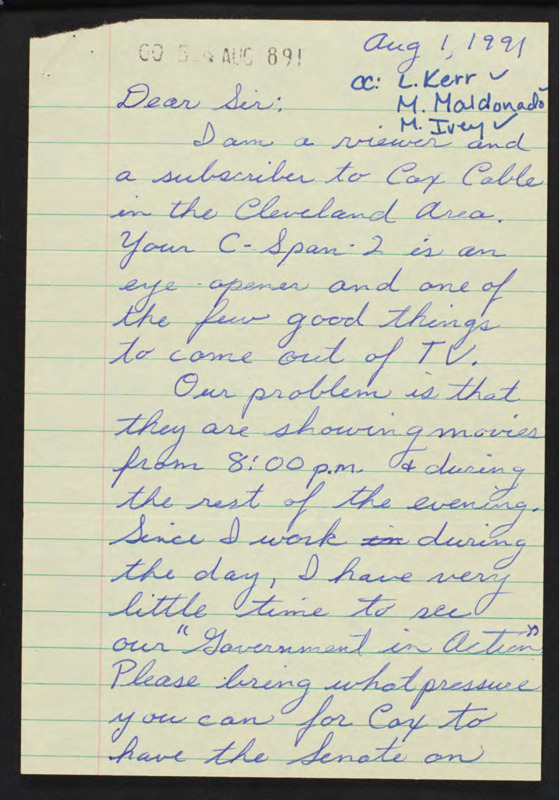 AUG 891
Aug 1, 1991
cc: L. Kerr ✓
M. Maldonado ✓
M. Ivey ✓
Dear Sir:
I am a viewer and
a subscriber to Cox Cable
in the Cleveland Area.
Your C-Span-2 is an
eye-opener and one of
the few good things
to come out of TV.
Our problem is that
they are showing movies
from 8:00 p.m. & during
the rest of the evening.
Since I work in during
the day, I have very
little time to see
our "Government in Action"
Please bring what pressure
you can for Cox to
have the Senate on